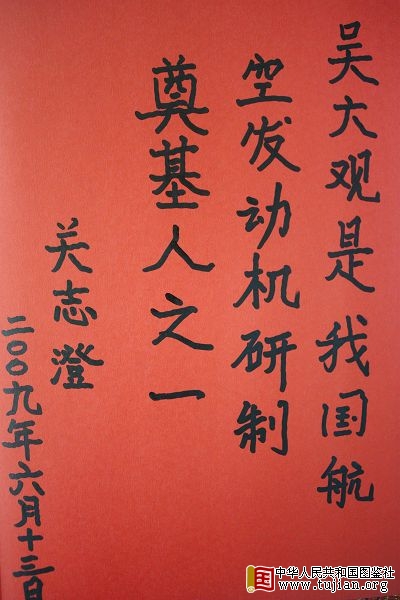 吴大观是我国航
空发动机研制
奠基人之一
关志澄
二〇〇九年六月十三日
国
中华人民共和国图鉴社
www.tujian.org